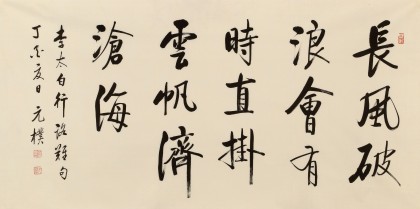 長風破
浪會有
時直掛
雲帆濟
滄海
李太白行路難句
丁亥夏日元樸